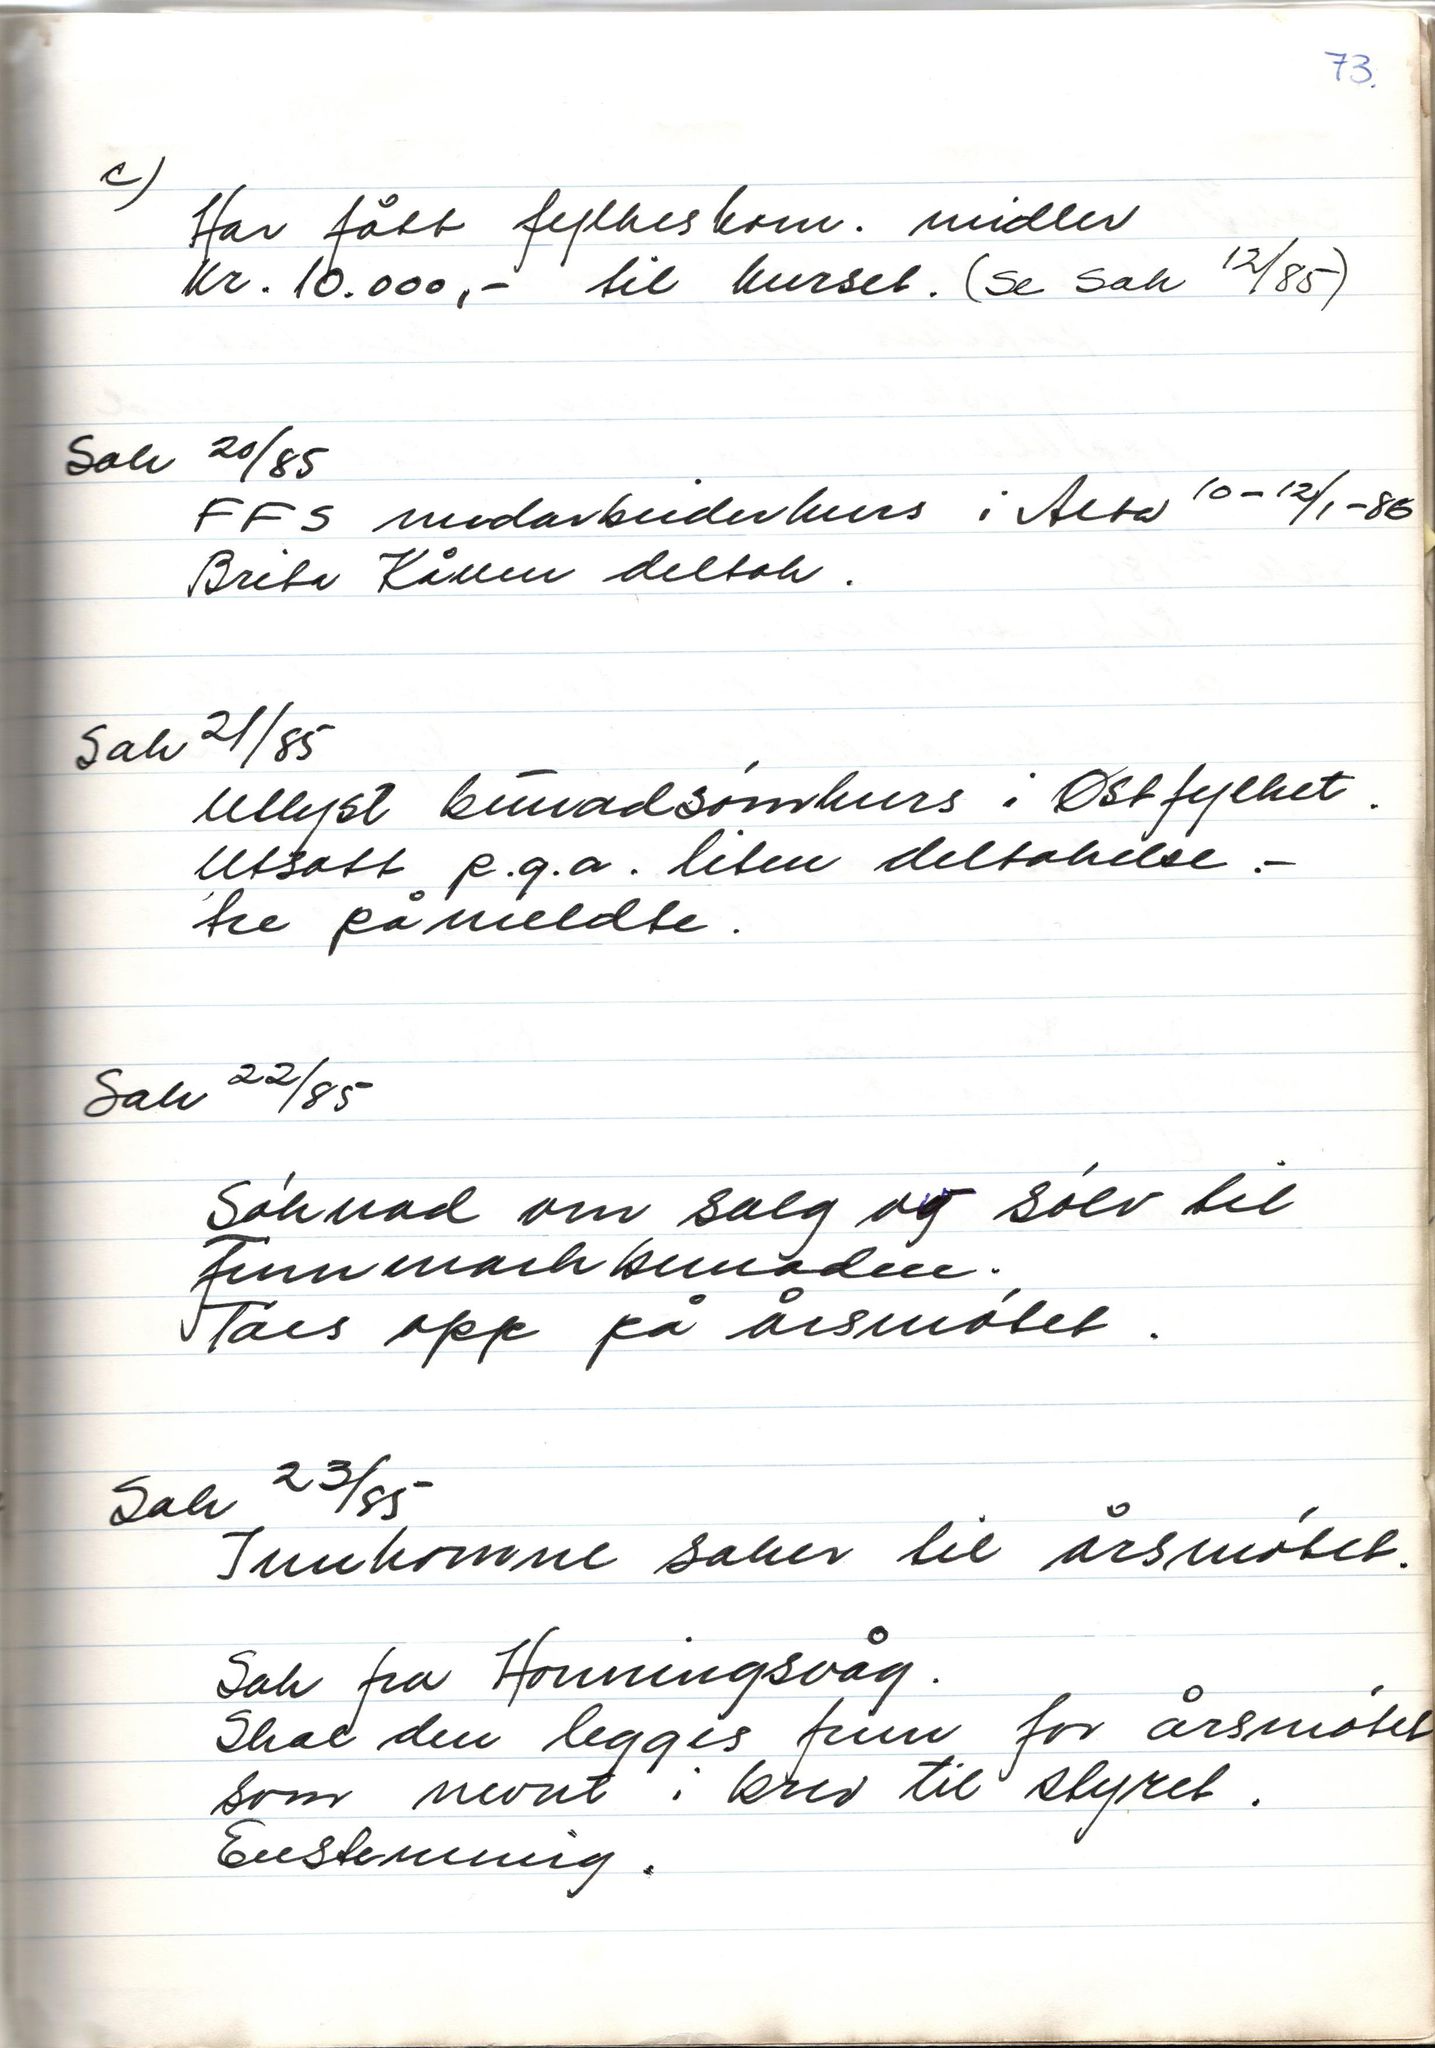 73.
c)
Har fått fylkeskom. midler
Kr. 10.000,- til kurset. (se sak 12/85)
Sak 20/85
FFS medarbeiderkurs i Alta 10-12/1-86
Brita Kåven deltok.
Sak 21/85
Utlyst bunadsömkurs i Östfylket.
Utsatt p.g.a. liten deltakelse.-
tre påmeldte.
Sak 22/85
Söknad om salg og sölv til
Finnmarkbunaden.
Taes opp på årsmötet.
Sak 23/85
Innkomne saker til årsmötet.
Sak fra Honningsvåg.
Skal den legges frem for årsmötet
som nevnt i brev til styret.
Enstemmig.